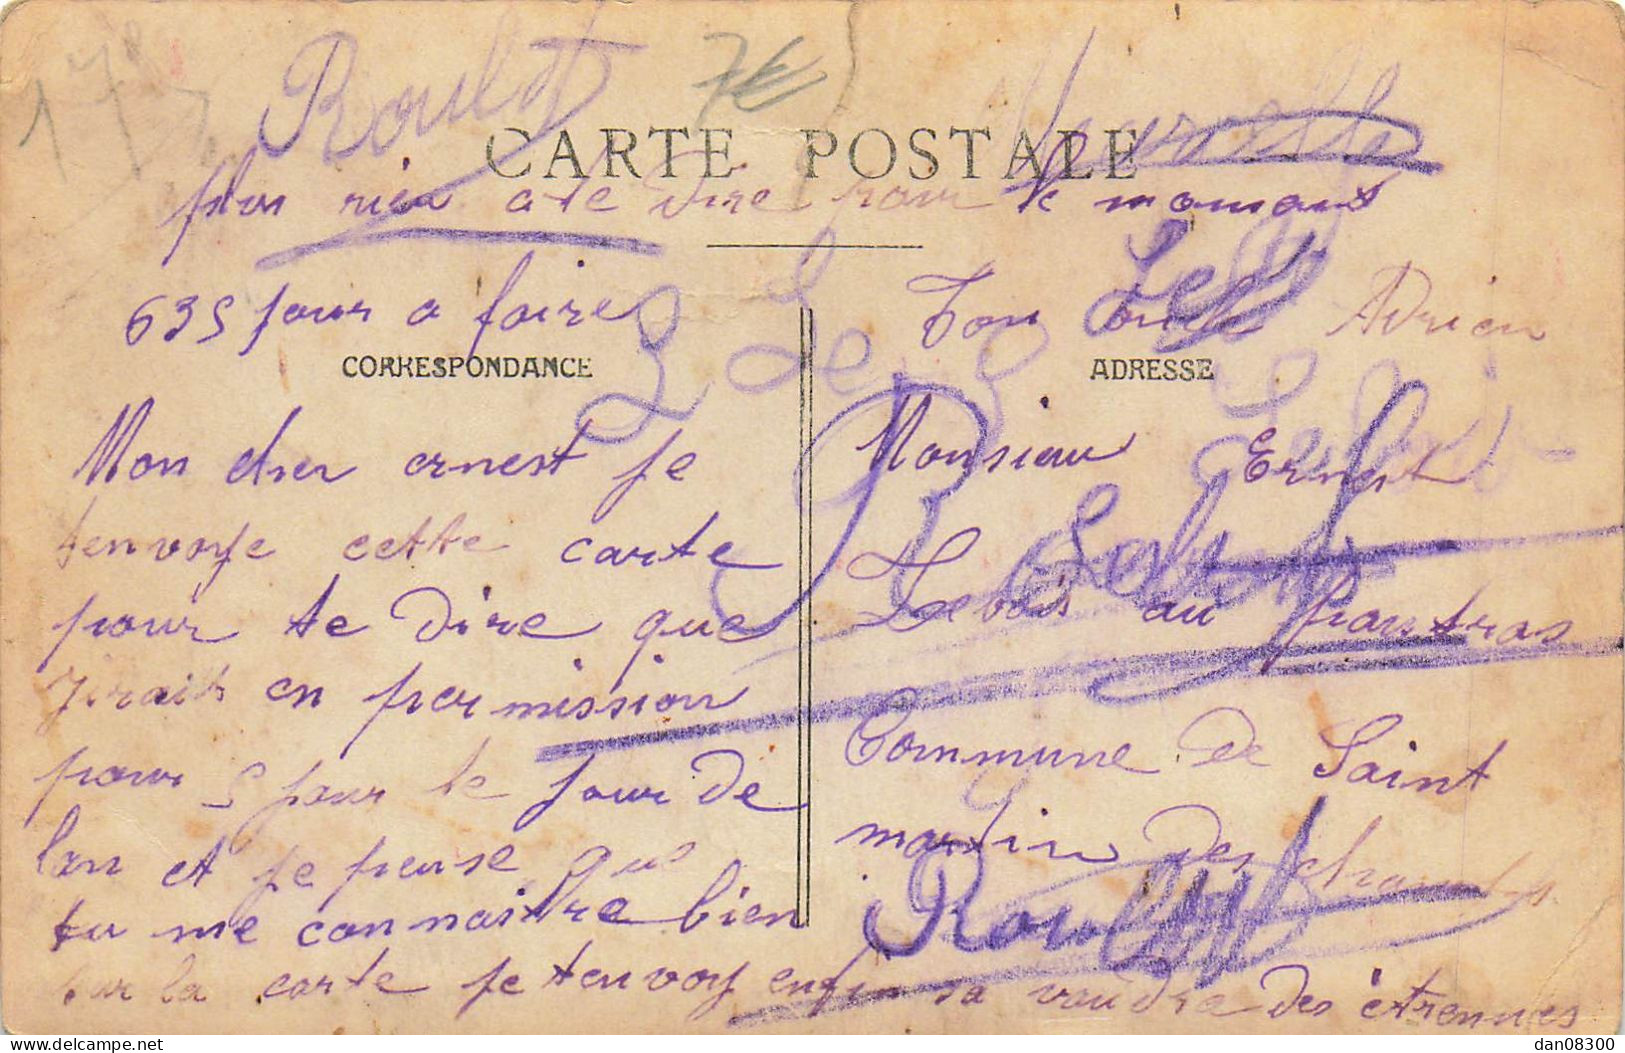 173
Roulet
7€
CARTE POSTALE
plus rien a te dire pour le momant
635 jour a faire
Ton oncle Adrien
CORRESPONDANCE
ADRESSE
Mon cher ernest je
tenvoye cette carte
pour te dire que
jirait en permission
pour 5 jour le jour de
lan et je pense que
tu me connaitre bien
sur la carte je tenvoy enfin sa vaudra des étrennes
Monsieur Ernest
Lebois au pontras
Commune de Saint
martin des champs
Roulet
dan08300